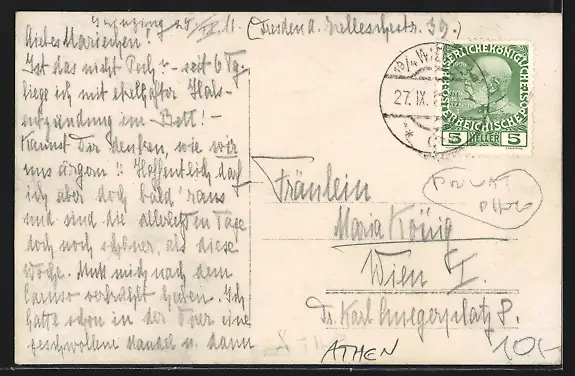 27./IX. 11. (Dresden A. Zelleschestr. 39.)
Liebes Mariechen!
Ist das nicht Pech – seit 6 Tg.
liege ich mit ekelhafter Hals-
entzündung im Bett! –
Kannst Dir denken, wie wir
uns ärgern!! Hoffentlich darf
ich aber doch bald raus
und sind die allerletzten Tage
doch noch schöner, als diese
Woche. Muß mich nach dem
Caruso verkühlt haben. Ich
hatte schon in der Oper eine
geschwollene Mandel u. dann
10/4 WIEN
27. IX.
5 HELLER 5
Fräulein
Maria König
Wien I.
Dr. Karl Luegerplatz 8.
PRIVAT
PHOTO
ATHEN
10,-